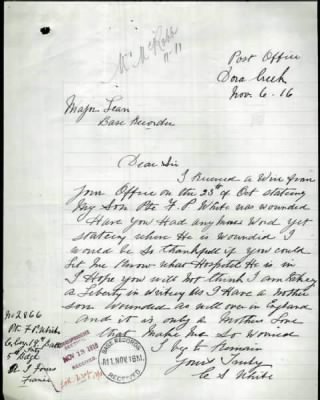 Mr McRobb
11.11
Post Office
Dora Creek
Nov. 6 - 16
Major Lean
Base Recorder
Dear Sir
I Received a Wire from
your Office on the 23rd of Oct stateing
My Son Pte F. P. White was wounded
Have You Had any more Word yet
stateing where He is Wounded I
would be So thankfull if you could
Let Me Know what Hospital He is
in I Hope you will not think I am takeing
a Liberty in Writeing as I Have a brother
son Wounded as well over in England
and it is only a Mothers Love
that Makes Me So Worried
I beg to Remain
Yours Truly
C S White
No 2866
Pte F. P. White
5th Bdge
A I Force
France
NOV 13 1916
RECEIVED
BASE RECORDS
11 NOV 1916
RECEIVED